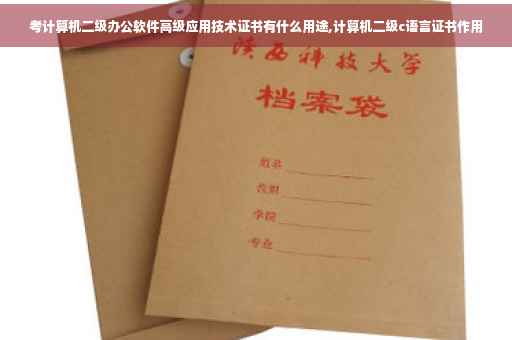 考计算机二级办公软件高级应用技术证书有什么用途,计算机二级c语言证书作用
陕西科技大学
档案袋
姓名
学院
专业